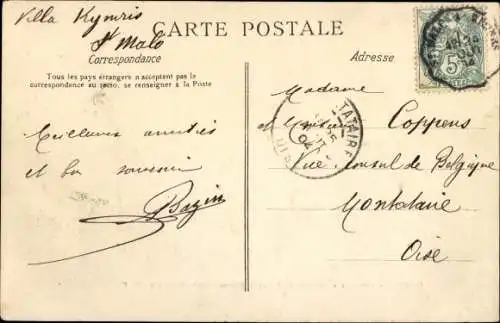 Villa Kymris
St Malo
CARTE POSTALE
Correspondance
Adresse
Tous les pays étrangers n'acceptent pas la
correspondance au recto, se renseigner à la Poste
Meilleures amitiés
et bon souvenir
Bazin
Madame
Coppens
Vice Consul de Belgique
Montataire
Oise
5
TATAIRE
OISE
04